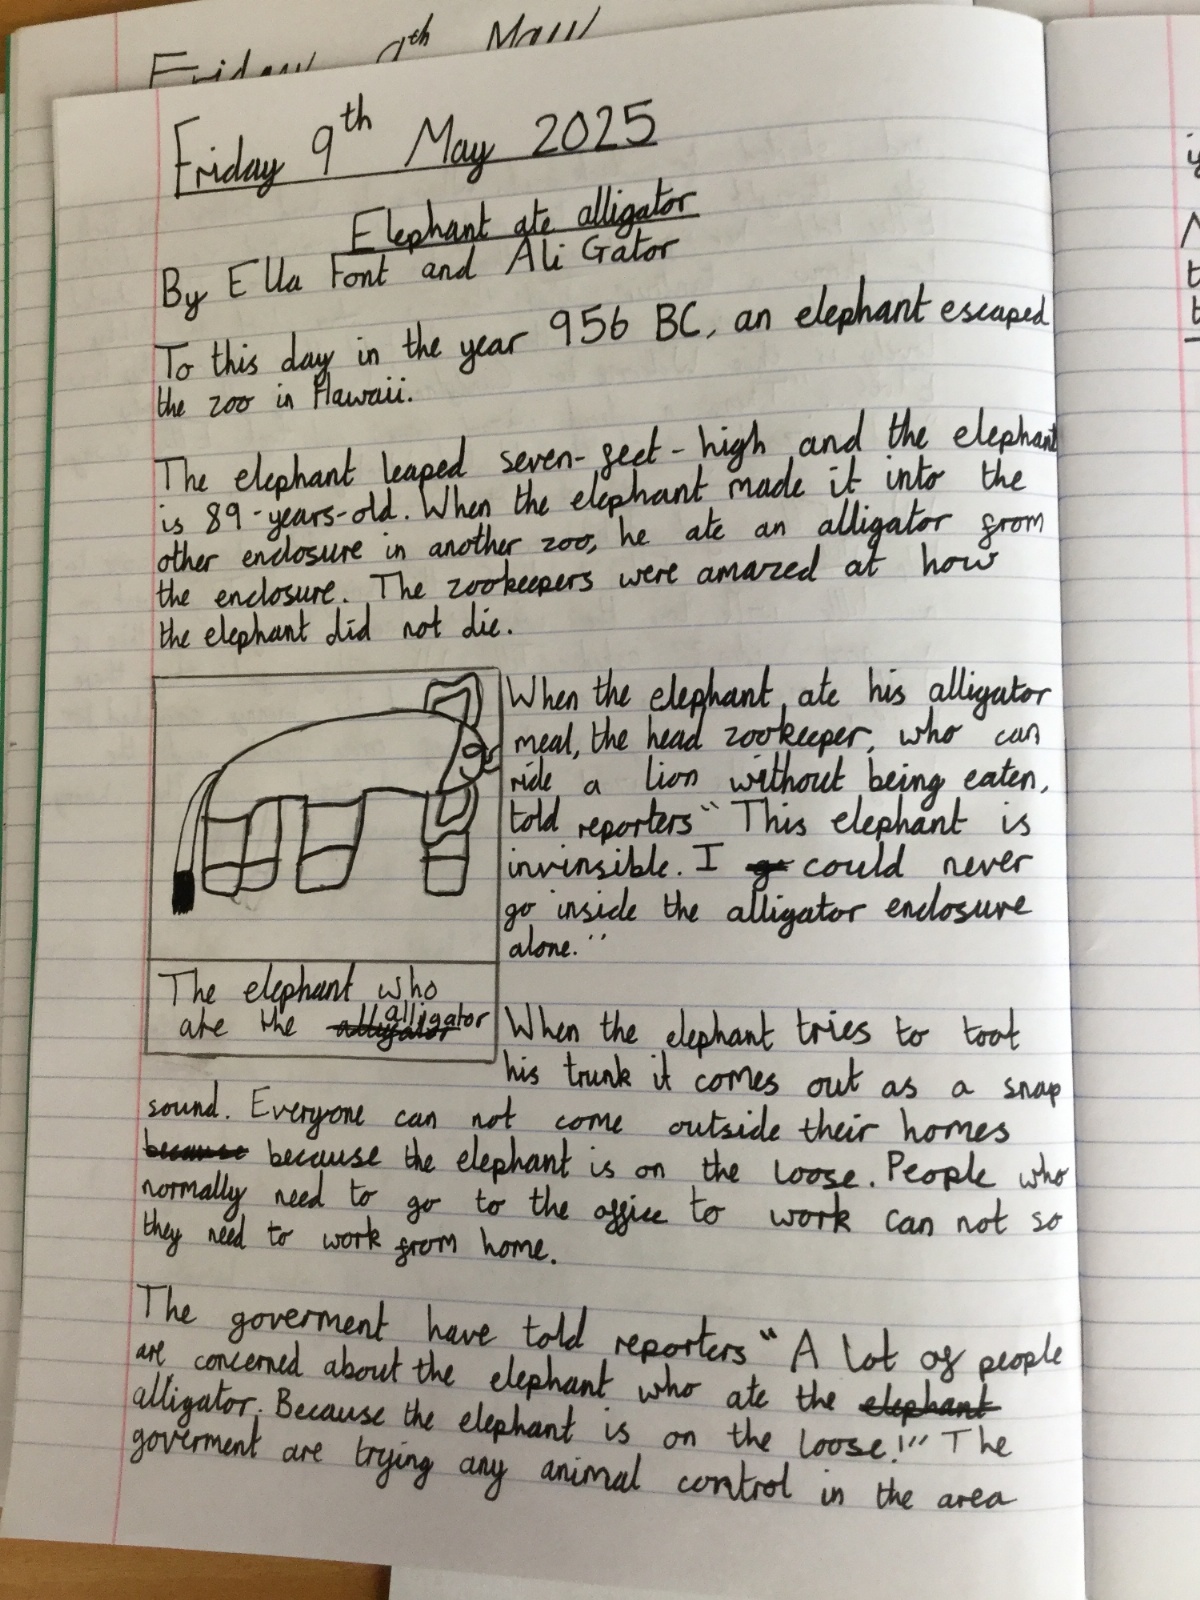 Friday 9th May
Friday 9th May 2025
Elephant ate alligator
By Ella Font and Ali Gator
To this day in the year 956 BC, an elephant escaped
the zoo in Hawaii.
The elephant leaped seven-feet-high and the elephant
is 89-years-old. When the elephant made it into the
other enclosure in another zoo, he ate an alligator from
the enclosure. The zookeepers were amazed at how
the elephant did not die.
When the elephant ate his alligator
meal, the head zookeeper, who can
ride a lion without being eaten,
told reporters "This elephant is
invinsible. I could never
go inside the alligator enclosure
alone."
The elephant who
ate the alligator
When the elephant tries to toot
his trunk it comes out as a snap
sound. Everyone can not come outside their homes
because because the elephant is on the loose. People who
normally need to go to the office to work can not so
they need to work from home.
The goverment have told reporters "A lot of people
are concerned about the elephant who ate the elephant
alligator. Because the elephant is on the loose!" The
goverment are trying any animal control in the area